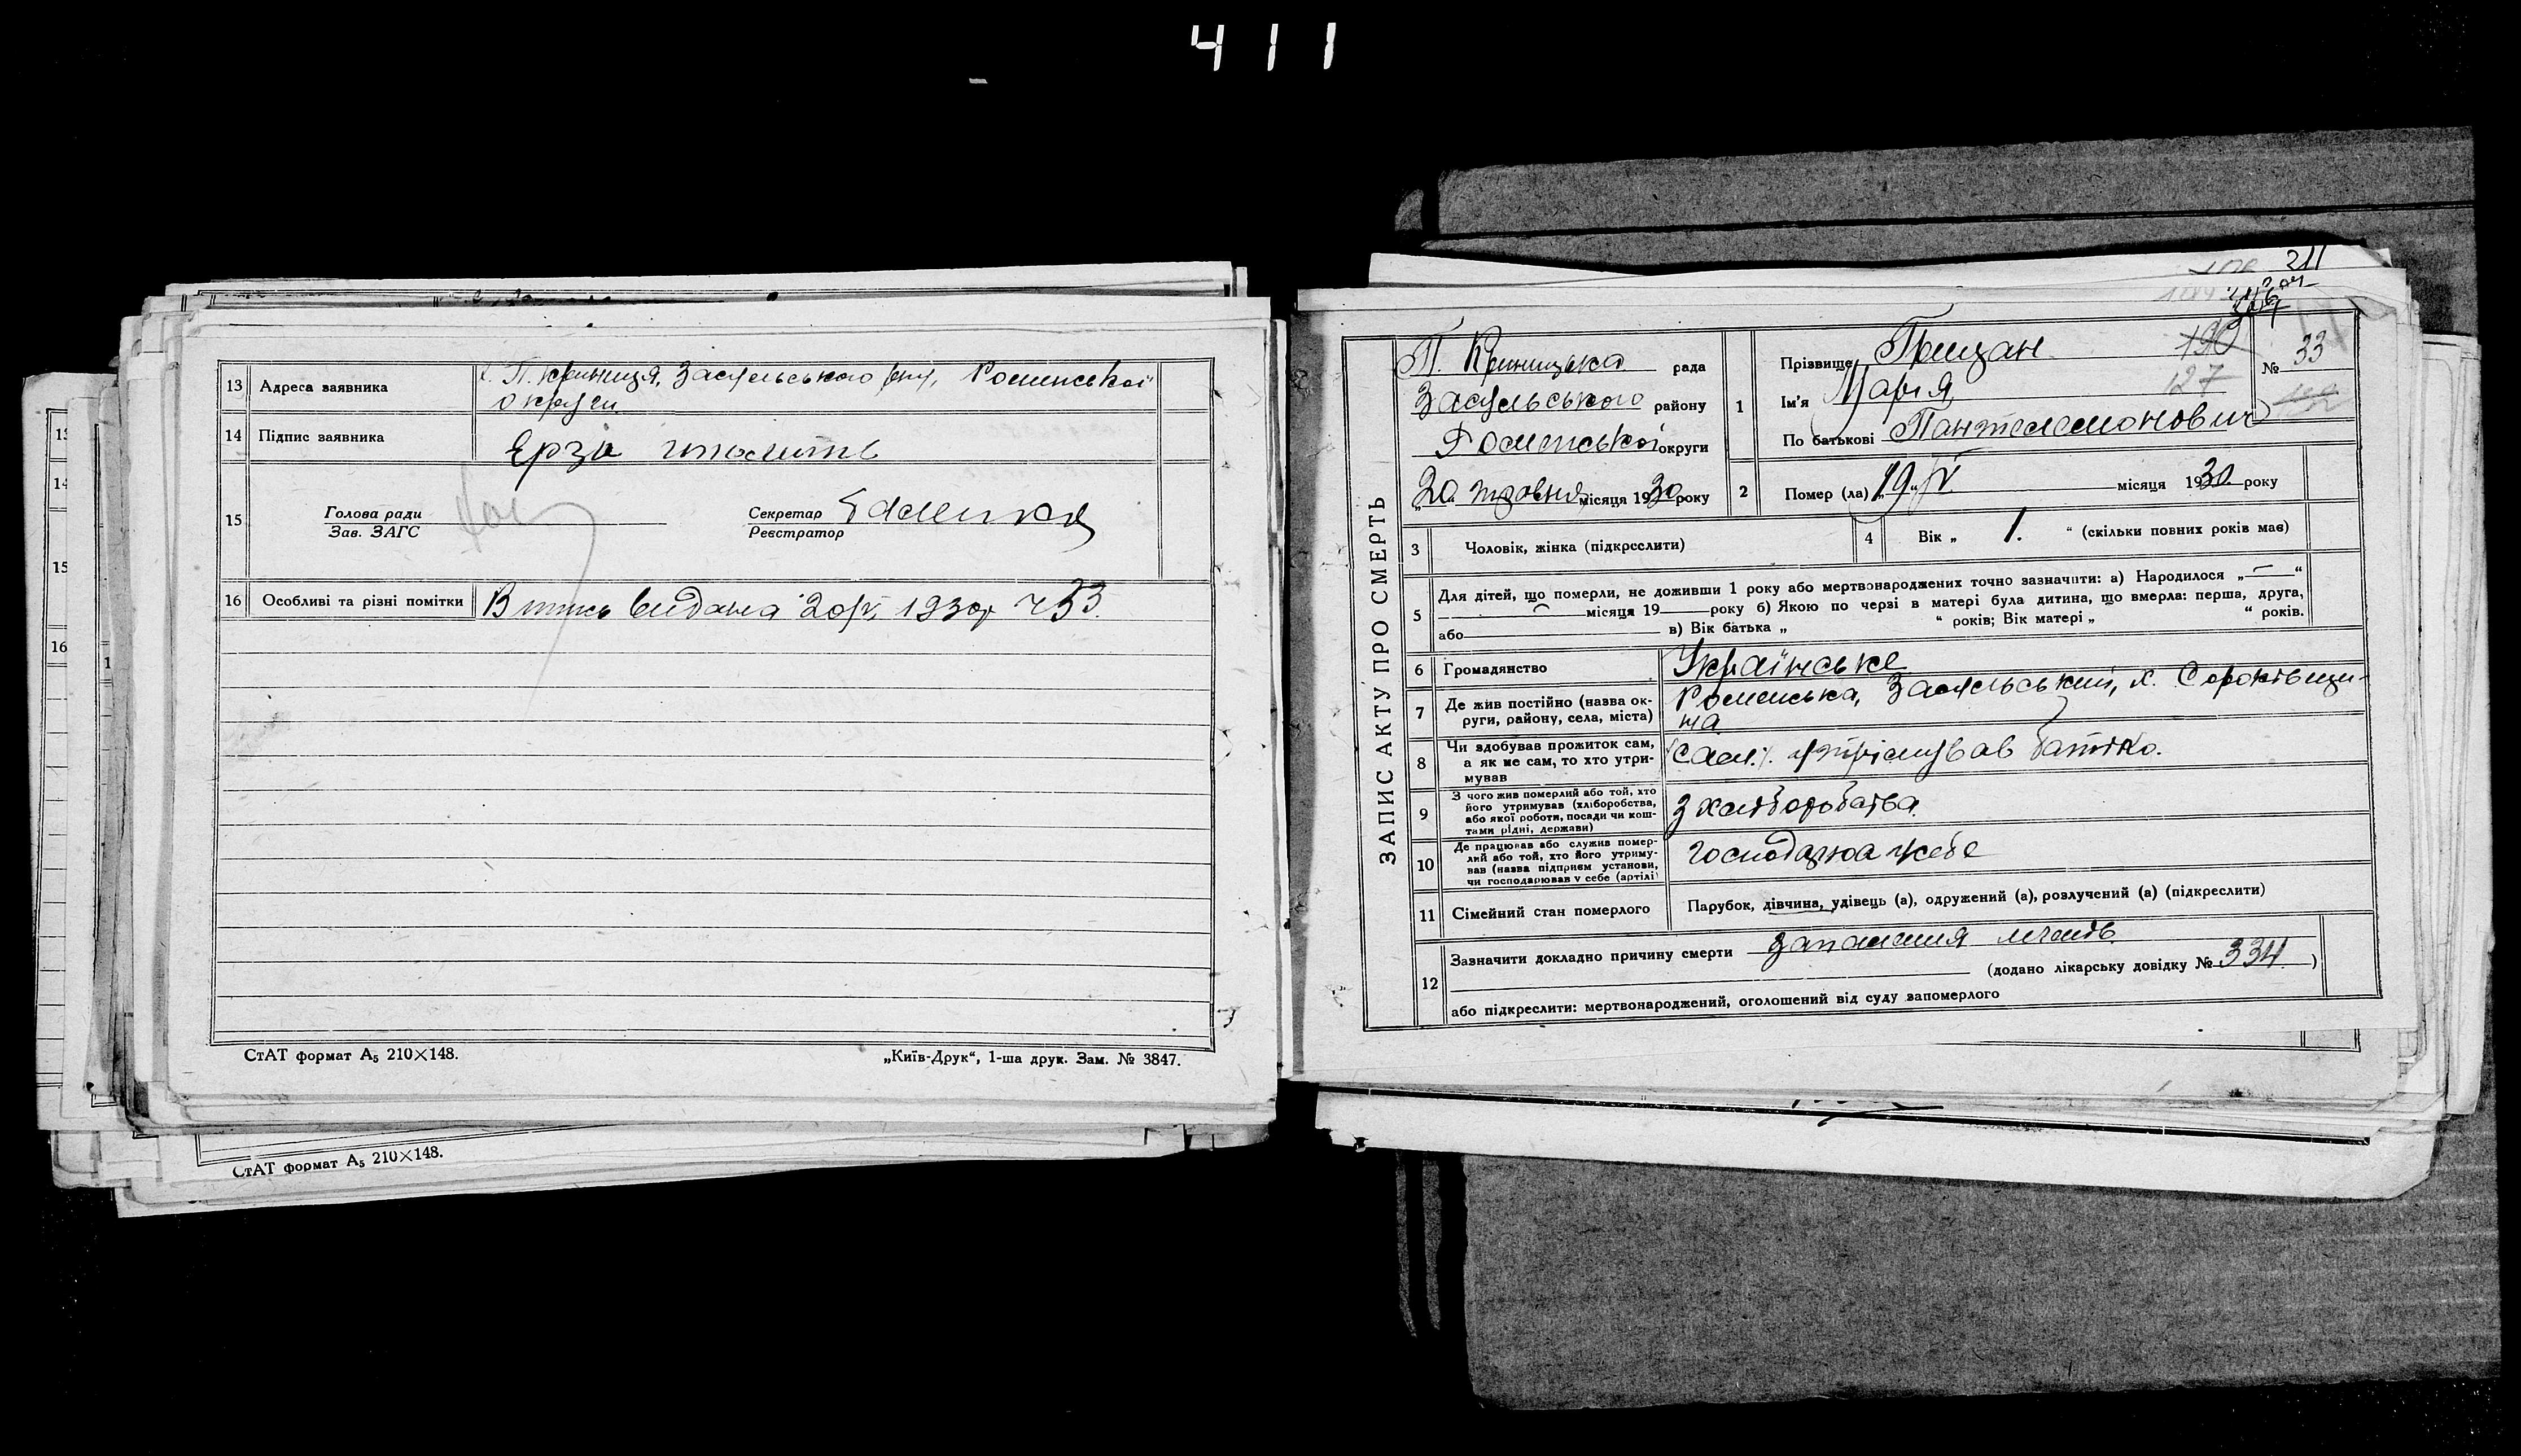 411
13 Адреса заявника
Засульського Роменської
округи
14 Підпис заявника
15 Голова ради
Зав. ЗАГС
Секретар
Реєстратор
16 Особливі та різні помітки
видана 20/V 1930р ч 33.
СтАТ формат А5 210×148.
„Київ-Друк“, 1-ша друк. Зам. № 3847.
СтАТ формат А5 210×148.
211
190
127
ЗАПИС АКТУ ПРО СМЕРТЬ
П. Криницька рада
Засульського району
Роменської округи
20 травня місяця 1930 року
1 Прізвище Грицан
Ім'я Марія
По батькові Пантелемонович
№ 33
2 Помер (ла) „19“ V місяця 1930 року
3 Чоловік, жінка (підкреслити)
4 Вік „ 1. “ (скільки повних років мав)
5 Для дітей, що померли, не доживши 1 року або мертвонароджених точно зазначити: а) Народилося „—“
— місяця 19 року б) Якою по черзі в матері була дитина, що вмерла: перша, друга,
або в) Вік батька „ “ років; Вік матері „ “ років.
6 Громадянство Українське
7 Де жив постійно (назва ок-
руги, району, села, міста)
Роменська, Засульський, х.
на
8 Чи здобував прожиток сам,
а як не сам, то хто утри-
мував
утрімував батько.
9 З чого жив померлий або той, хто
його утримував (хліборобства,
або якої роботи, посади чи кош-
тами рідні, держави)
з хліборобства.
10 Де працював або служив помер-
лий або той, хто його утриму-
вав (назва підприєм установи,
чи господарював у себе (артілі)
11 Сімейний стан померлого
Парубок, дівчина, удівець (а), одружений (а), розлучений (а) (підкреслити)
12 Зазначити докладно причину смерти запалення
(додано лікарську довідку № 334 )
або підкреслити: мертвонароджений, оголошений від суду запомерлого